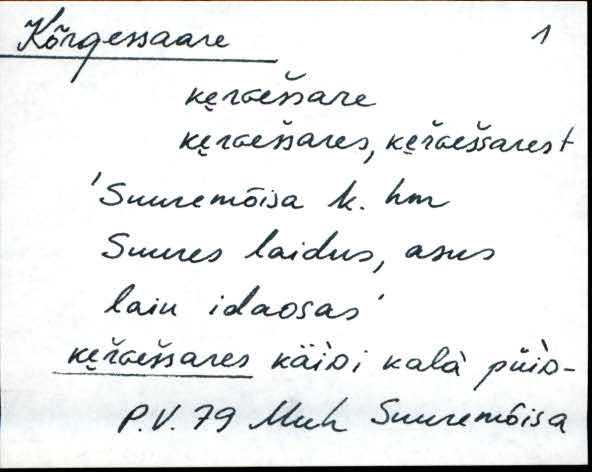 Kõrgessaare 1
ķe̮rɢešsare
ke̮rɢešsares, ke̮řɢešsarest
'Suuremõisa k. hm
Suures laidus, asus
laiu idaosas'
ke̮řɢešsares käìᴅi kalà püìᴅ-
P.V. 79 Muh Suuremõisa